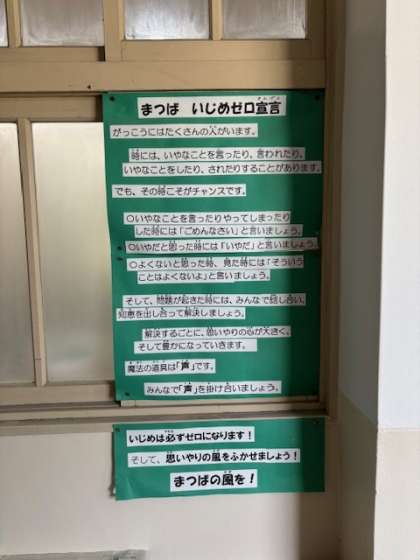 まつば　いじめゼロ宣言
がっこうにはたくさんの人がいます。
時には、いやなことを言ったり、言われたり、
いやなことをしたり、されたりすることがあります。
でも、その時こそがチャンスです。
○いやなことを言ったりやってしまったり
した時には「ごめんなさい」と言いましょう。
○いやだと思った時には「いやだ」と言いましょう。
○よくないと思った時、見た時には「そういう
ことはよくないよ」と言いましょう。
そして、問題が起きた時には、みんなで話し合い、
知恵を出し合って解決しましょう。
解決するごとに、思いやりの心が大きく、
そして豊かになっていきます。
魔法の道具は「声」です。
みんなで「声」を掛け合いましょう。
いじめは必ずゼロになります！
そして、思いやりの風をふかせましょう！
まつばの風を！